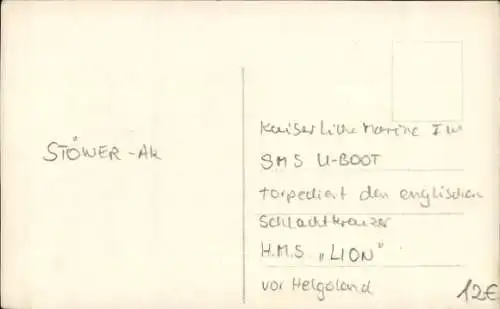 STÖWER-AK
Kaiserliche Marine I W
SMS U-BOOT
torpediert den englischen
Schlachtkreuzer
H.M.S „LION"
vor Helgoland
12€